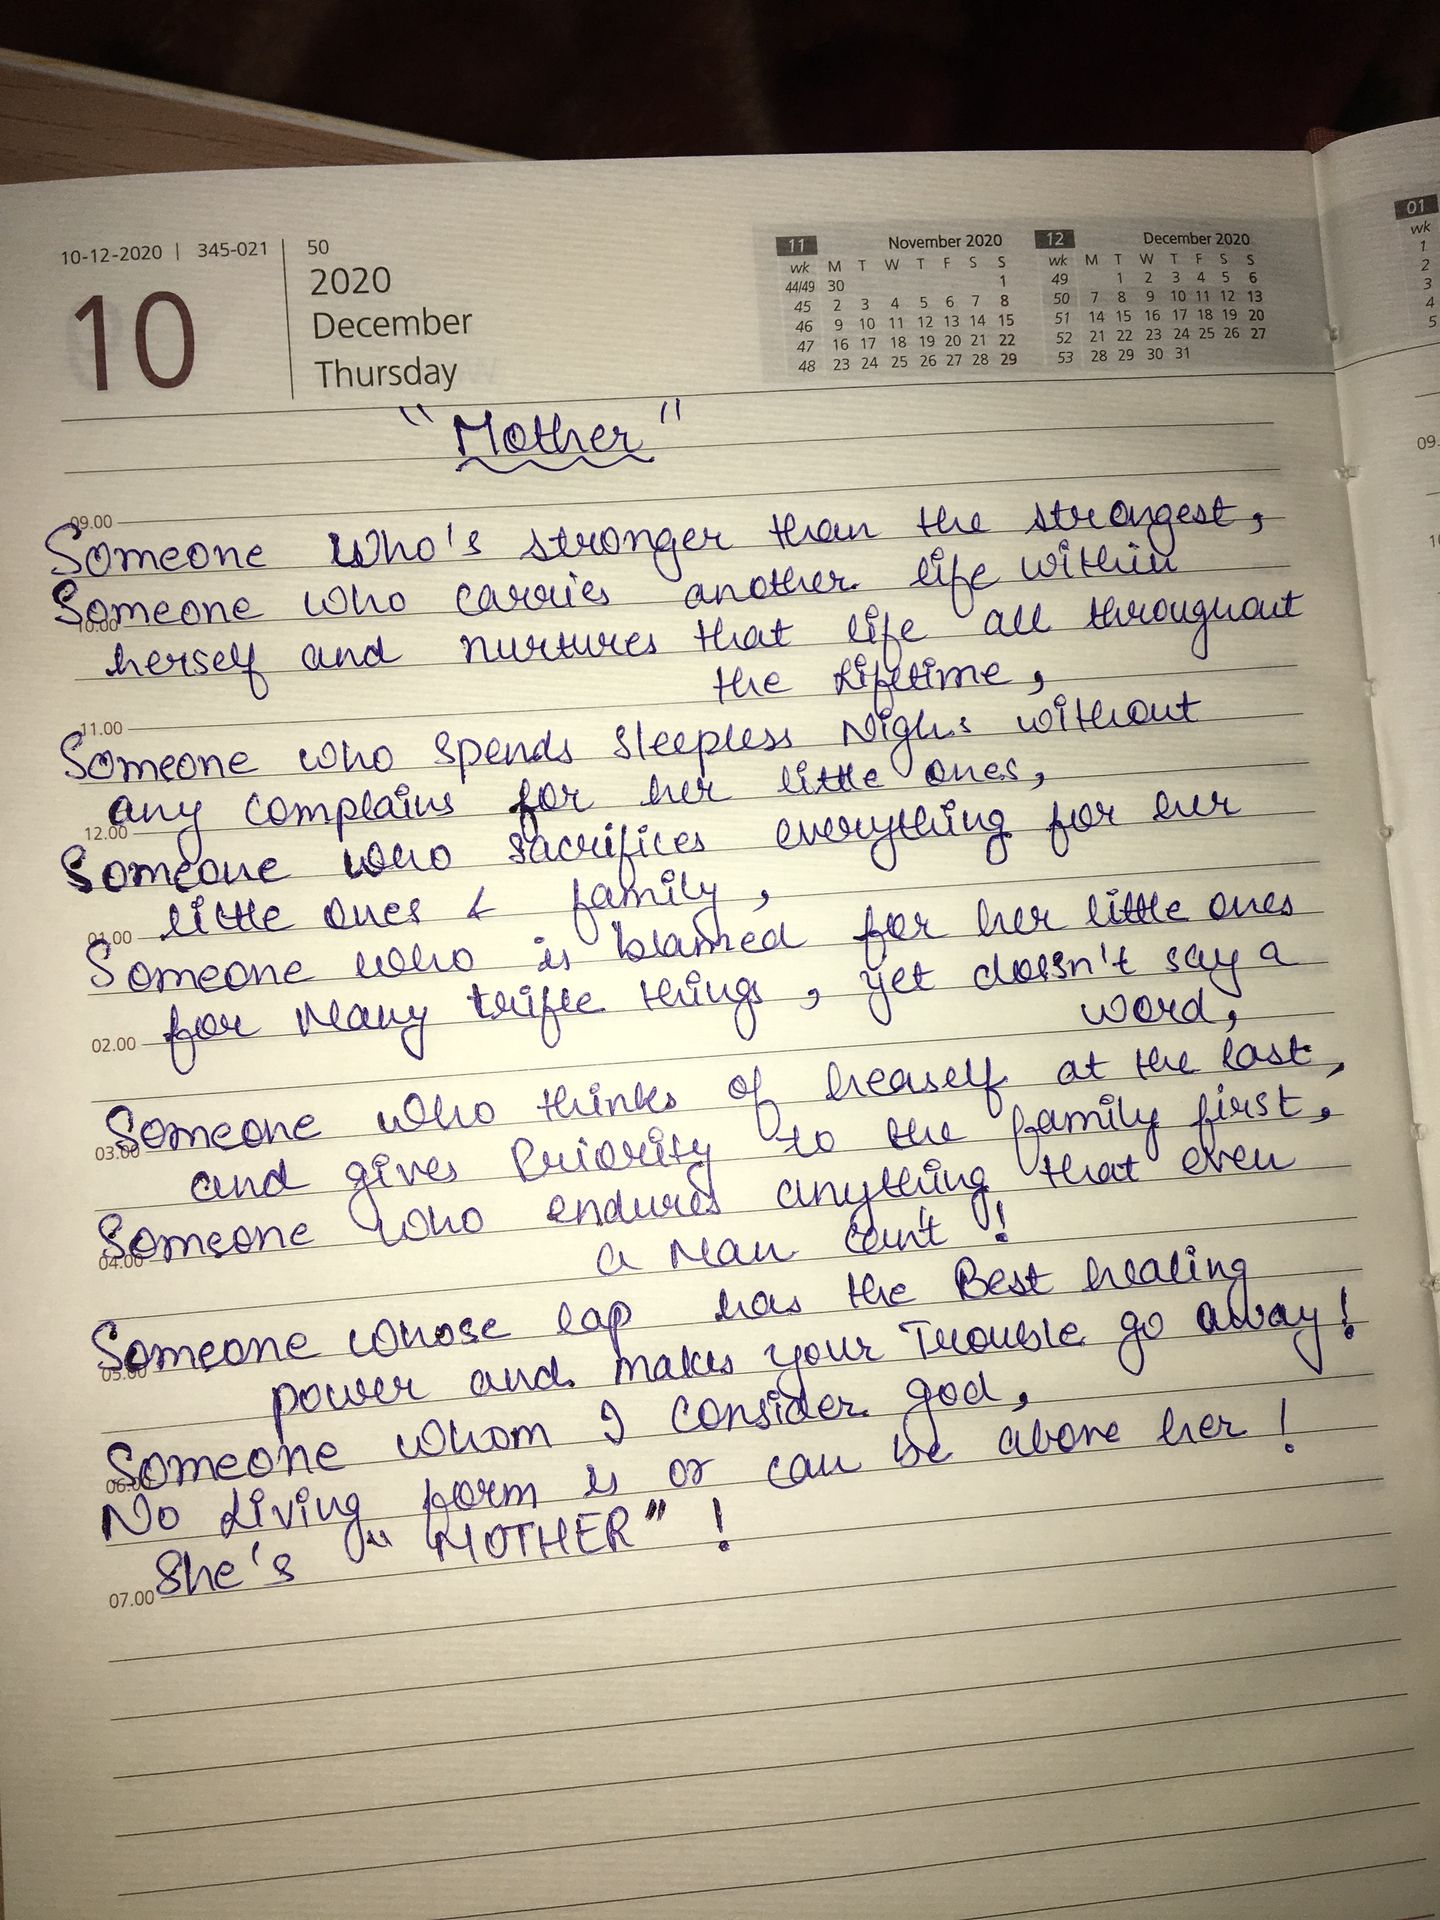 10-12-2020 | 345-021 | 50
10
2020
December
Thursday
11 November 2020
wk M T W T F S S
44/49 30 1
45 2 3 4 5 6 7 8
46 9 10 11 12 13 14 15
47 16 17 18 19 20 21 22
48 23 24 25 26 27 28 29
12 December 2020
wk M T W T F S S
49 1 2 3 4 5 6
50 7 8 9 10 11 12 13
51 14 15 16 17 18 19 20
52 21 22 23 24 25 26 27
53 28 29 30 31
01
wk
1
2
3
4
5
"Mother"
09.00
Someone who's stronger than the strongest,
Someone who carries another life within
10.00
herself and nurtures that life all throughout
the lifetime,
11.00
Someone who spends sleepless Nighs without
any complains for her little ones,
12.00
Someone who sacrifices everything for her
little ones & family,
01.00
Someone who is blamed for her little ones
for Many trifle things, yet doesn't say a
word,
02.00
Someone who thinks of herself at the last,
03.00
and gives Priority to the family first,
Someone who endures anything that even
04.00
a Man can't!
Someone whose lap has the Best healing
05.00
power and makes your Trouble go away!
Someone whom I consider god,
06.00
No Living form is or can be above her!
She's "MOTHER"!
07.00
09.